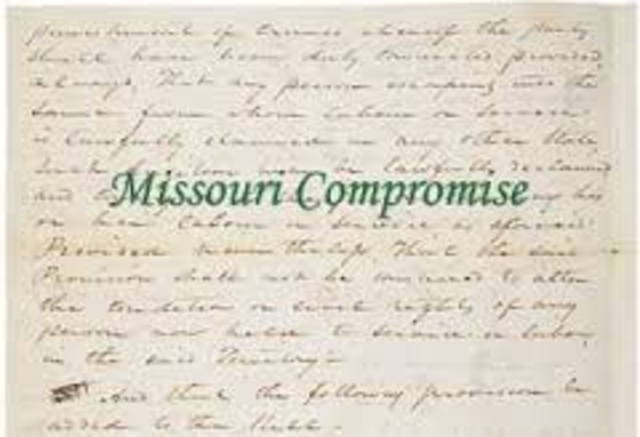 punishment of crimes whereof the party
shall have been duly convicted, provided,
always, That any person escaping into the
same from whom labour or service
is lawfully claimed in any other State
such may be lawfully reclaimed
Missouri Compromise
and his
or her labour or service as aforesaid:
Provided nevertheless, That the said
Provision shall not be construed to alter
the condition or civil rights of any
person now held to service or labour,
in the said Territory
And that the following provision be
added to the Bill.